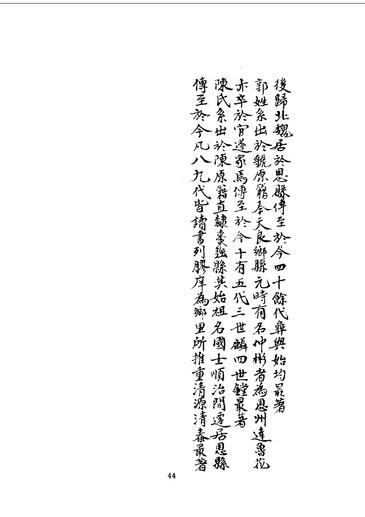 後歸北魏居於恩縣傳至於今四十餘代彝與始均最著
郭姓系出於虢原籍奉天良鄉縣元時有名仲彬者為恩州達魯花
赤卒於官遂家焉傳至於今十有五代三世麟四世鏜最著
陳氏系出於陳原籍直隸棗強縣其始祖名國士順治間遷居恩縣
傳至於今凡八九代皆讀書列膠庠為鄉里所推重清源清泰最著
44